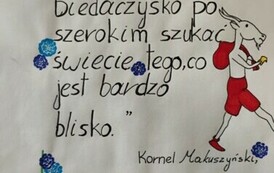 Biedaczysko po
szerokim szukać
świecie tego, co
jest bardzo
blisko."
Kornel Makuszyński,